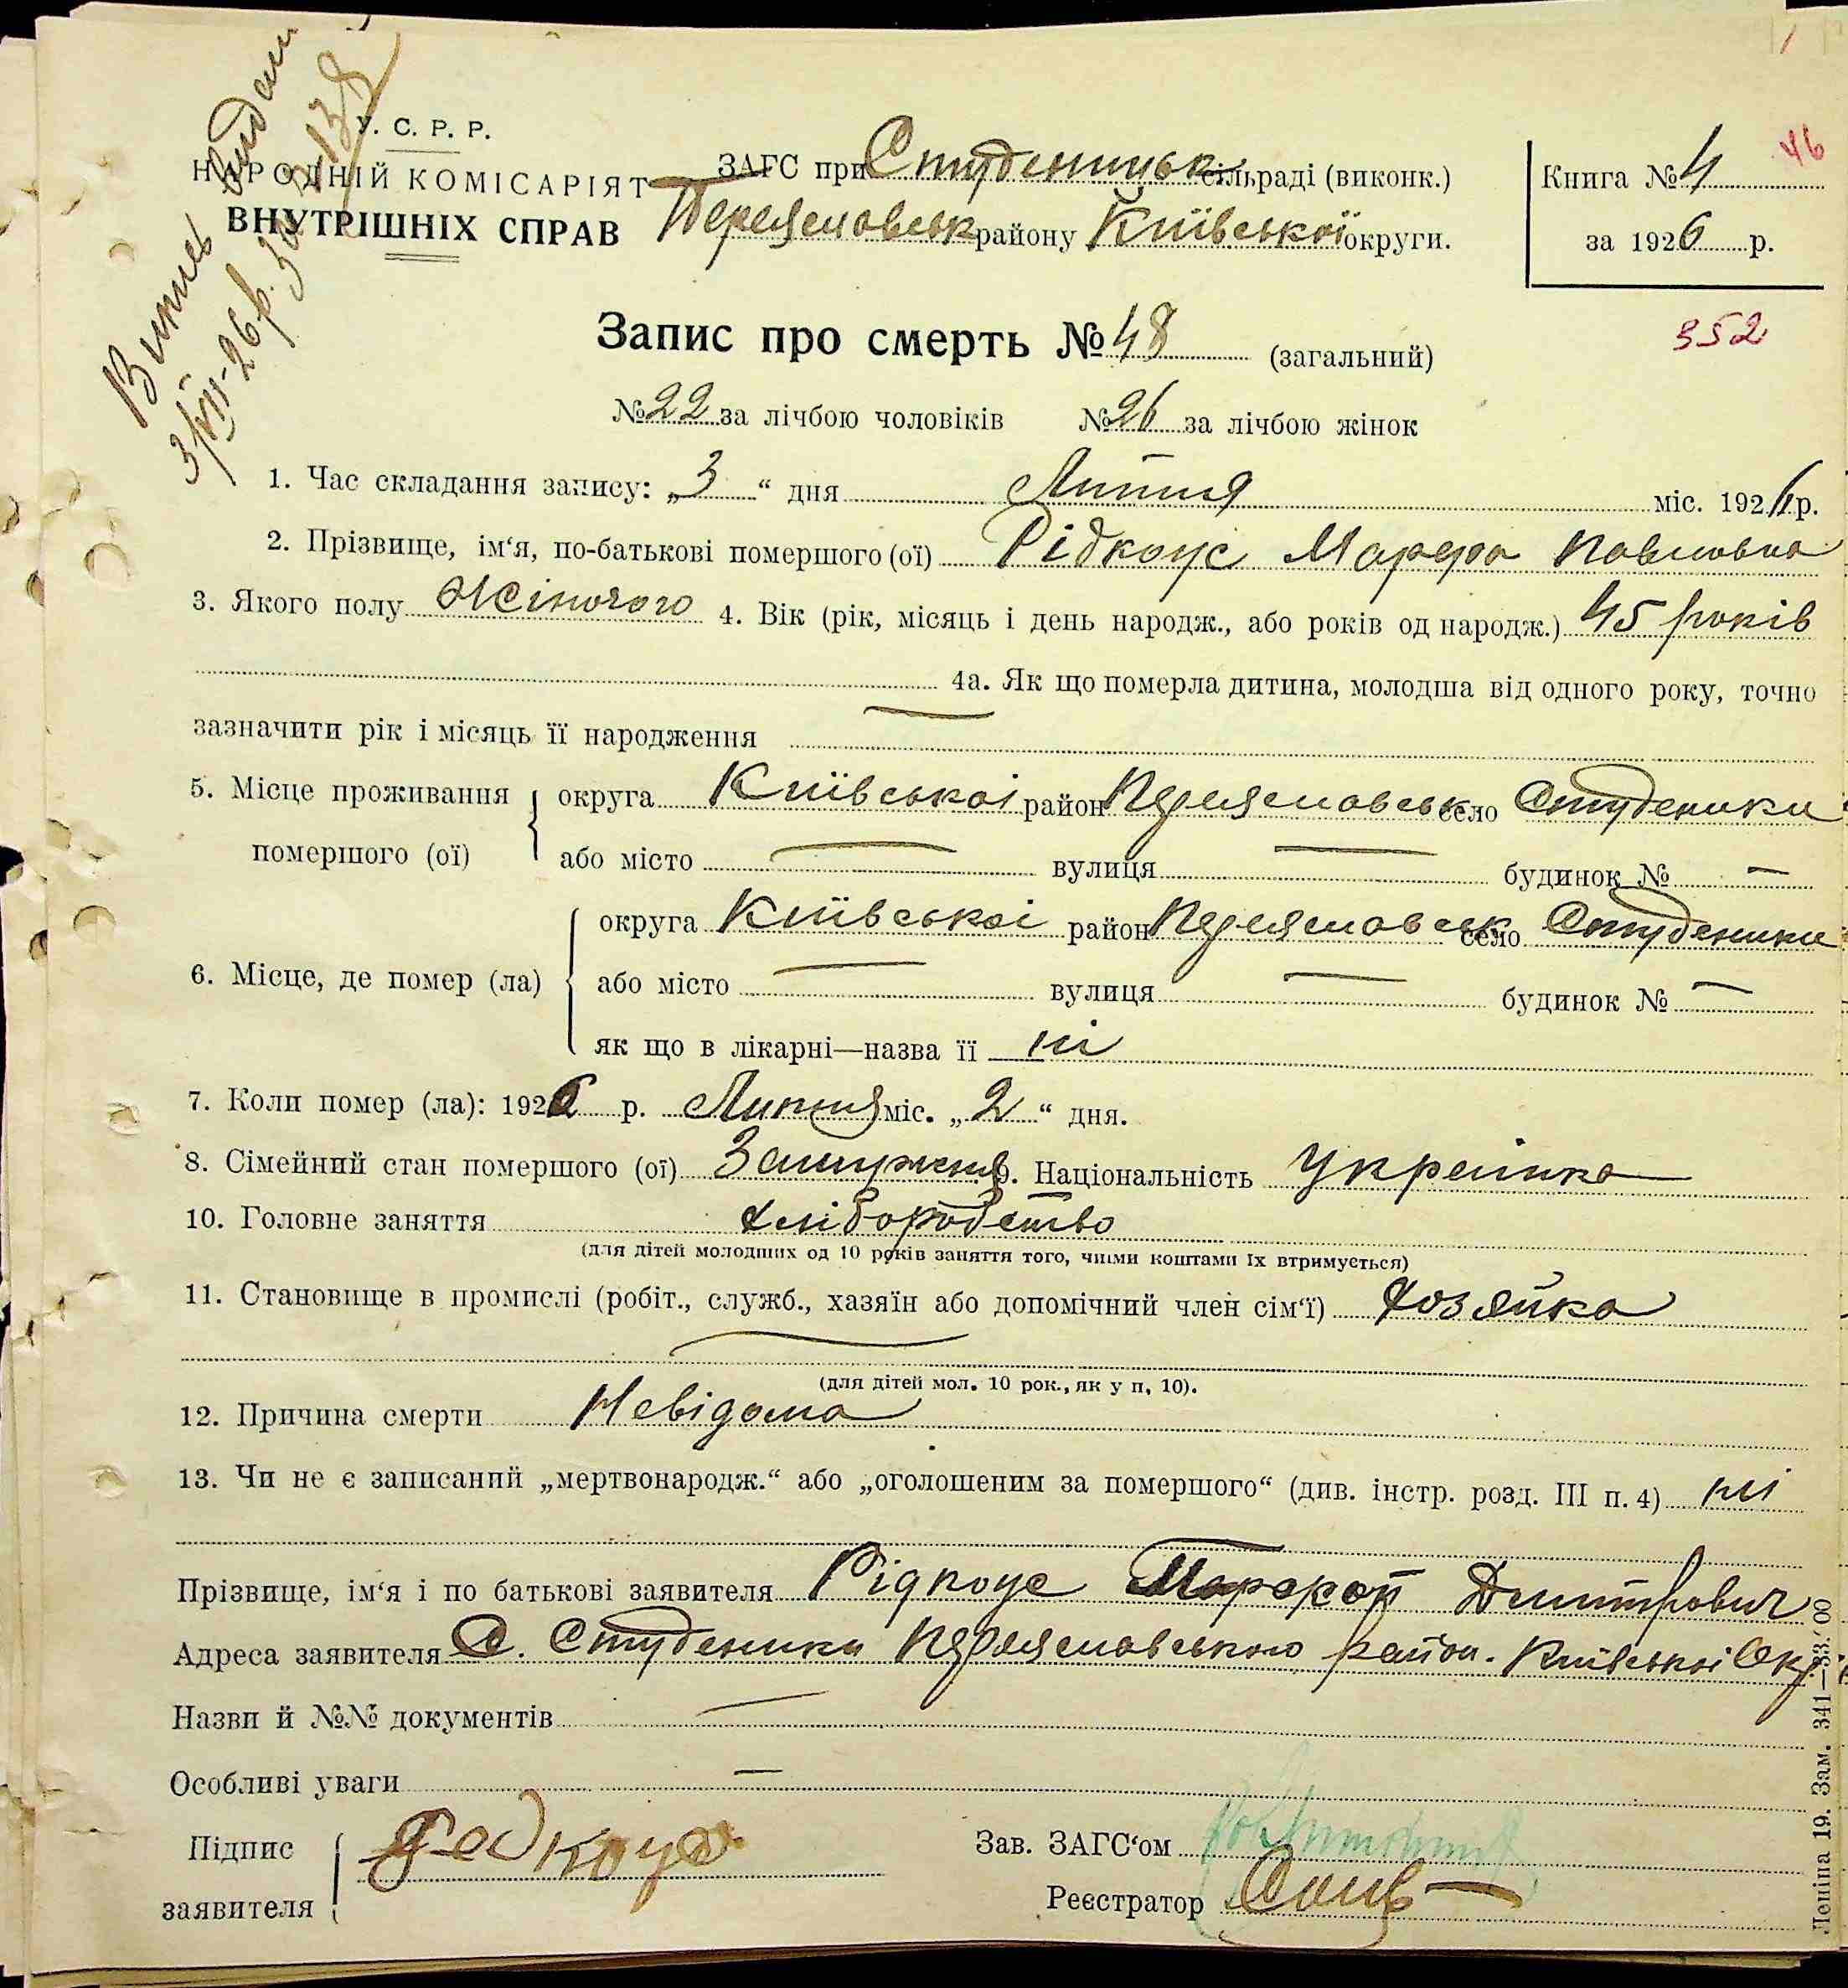 Витяг видани
3/VII-26 р. за № 138
У. С. Р. Р.
НАРОДНІЙ КОМІСАРІЯТ
ВНУТРІШНІХ СПРАВ
ЗАГС при Студеницьк сільраді (виконк.)
Переяславськ району Київської округи.
Книга № 4
46
за 1926 р.
352
Запис про смерть № 48 (загальний)
№ 22 за лічбою чоловіків № 26 за лічбою жінок
1. Час складання запису: „3“ дня Липня міс. 1926 р.
2. Прізвище, ім‘я, по-батькові помершого (ої) Рідкоус Марфа Павловна
3. Якого полу Жіночого 4. Вік (рік, місяць і день народж., або років од народж.) 45 років
4а. Як що померла дитина, молодша від одного року, точно
зазначити рік і місяць її народження —
5. Місце проживання помершого (ої) округа Київської район Переяславськ село Студеники
або місто — вулиця — будинок № —
6. Місце, де помер (ла) округа Київської район Переяславськ село Студеники
або місто — вулиця — будинок № —
як що в лікарні—назва її ні
7. Коли помер (ла): 1926 р. Липня міс. „2“ дня.
8. Сімейний стан помершого (ої) Замужня 9. Національність Українка
10. Головне заняття хліборобство
(для дітей молодших од 10 років заняття того, чиїми коштами їх втримується)
11. Становище в промислі (робіт., служб., хазяїн або допомічний член сім‘ї) хозяйка
—
(для дітей мол. 10 рок., як у п. 10).
12. Причина смерти Невідома
13. Чи не є записаний „мертвонародж.“ або „оголошеним за помершого“ (див. інстр. розд. III п. 4) ні
Прізвище, ім‘я і по батькові заявителя Рідкоус Дмитрович
Адреса заявителя С. Студеники Переяславського район. Київської Окр
Назви й №№ документів —
Особливі уваги —
Підпис заявителя Редкоус
Зав. ЗАГС‘ом
Реєстратор
Леніна 19. Зам. 341—33.